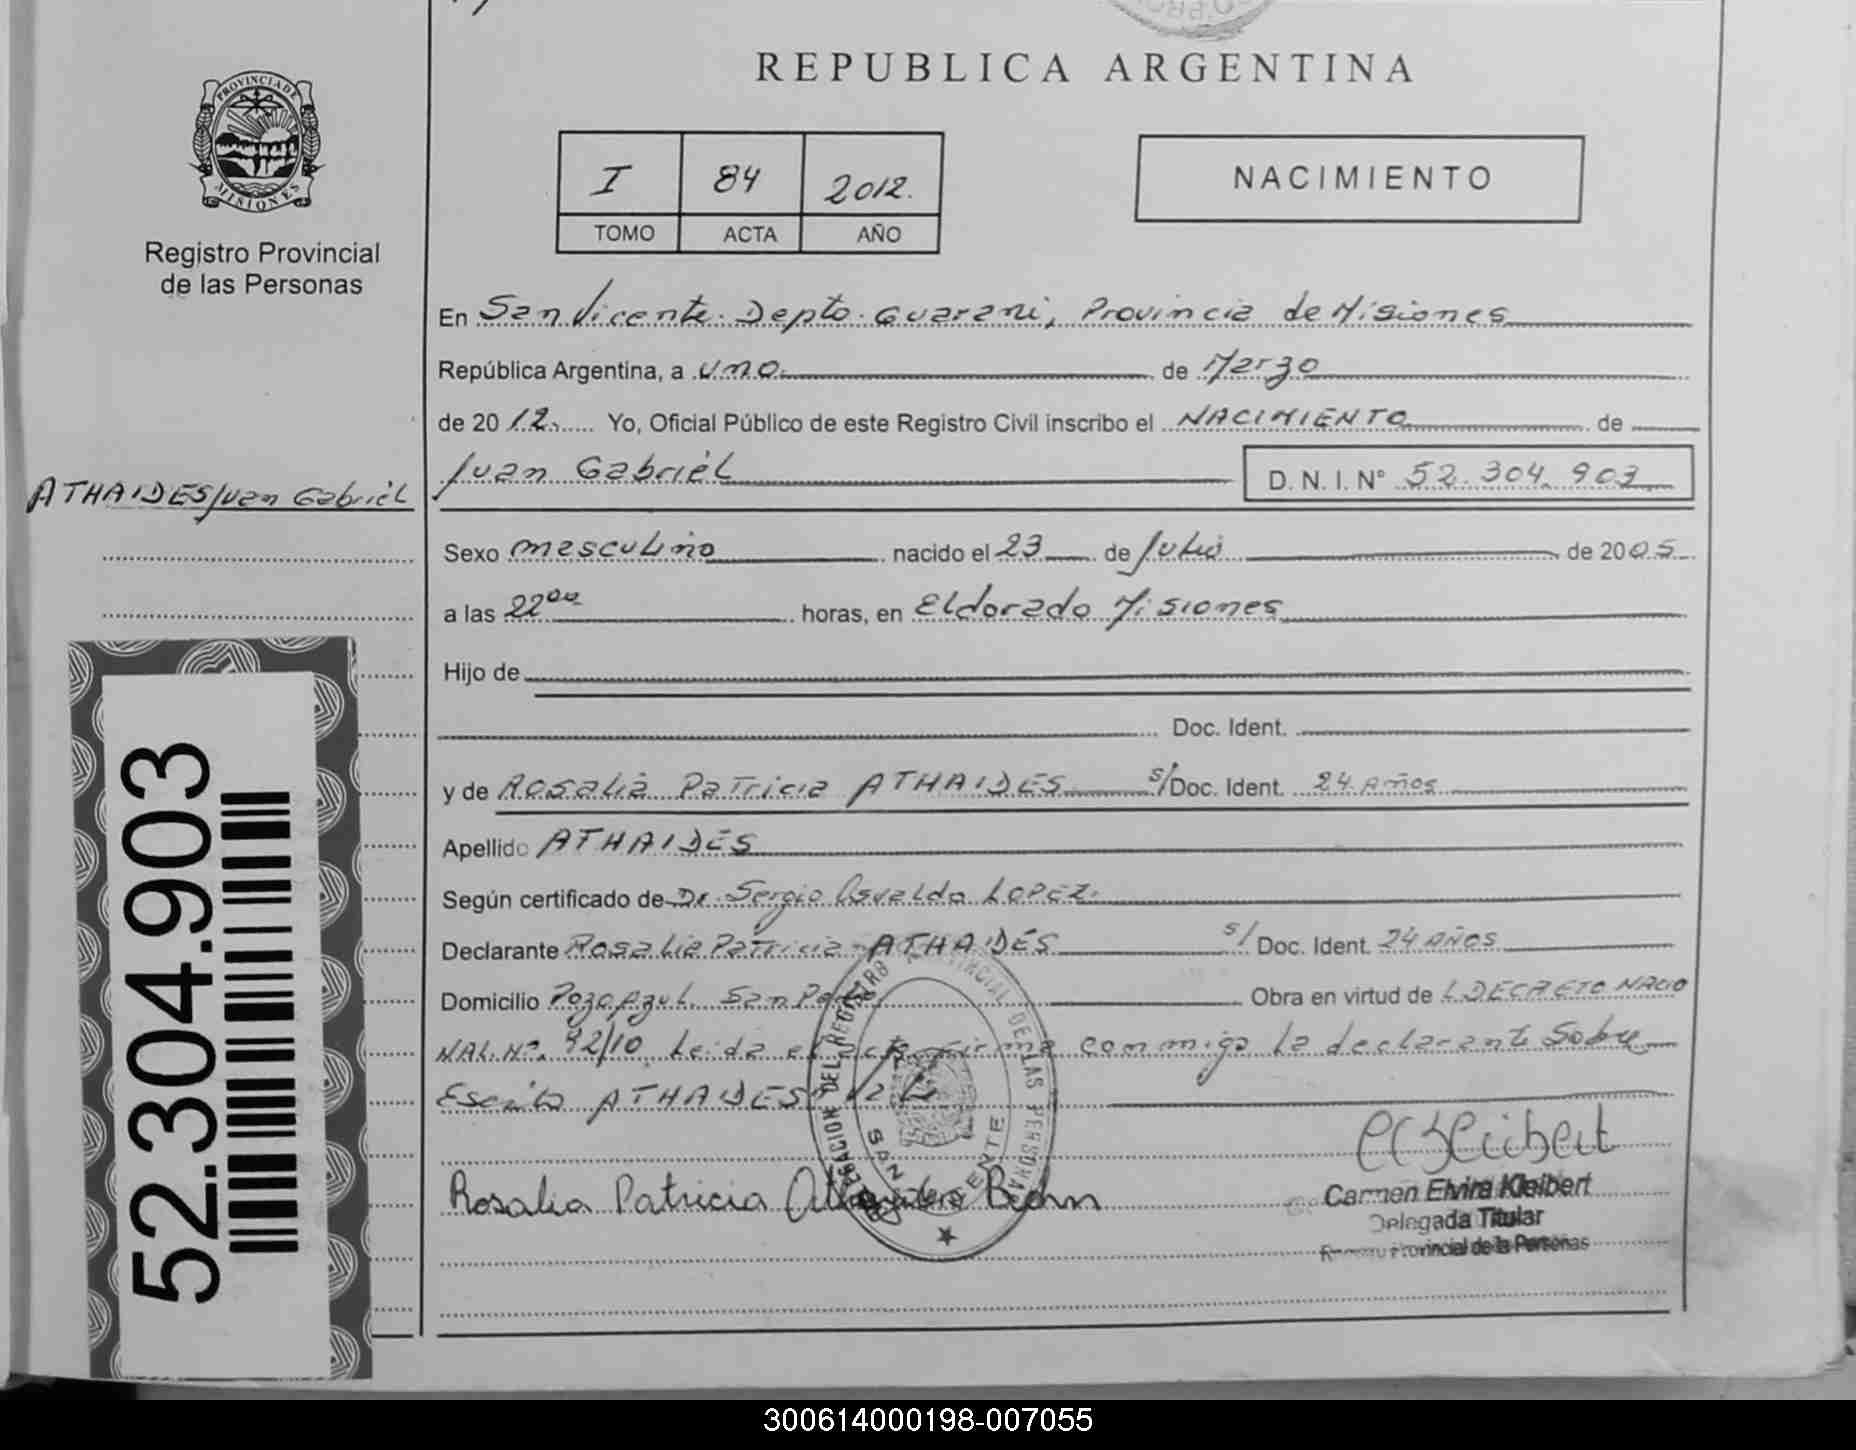 REPUBLICA ARGENTINA
PROVINCIA DE
MISIONES
Registro Provincial
de las Personas
I 84 2012.
TOMO ACTA AÑO
NACIMIENTO
En San Vicente. Depto. Guarani, Provincia de Misiones
República Argentina, a uno. de Marzo
de 2012. Yo, Oficial Público de este Registro Civil inscribo el NACIMIENTO de
Juan Gabriel D. N. I. Nº 52.304.903
ATHAIDES Juan Gabriel
Sexo masculino nacido el 23 de Julio de 2005
a las 22⁰⁰ horas, en Eldorado Misiones
Hijo de
Doc. Ident.
y de Rosalia Patricia ATHAIDES s/Doc. Ident. 24 Años
Apellido ATHAIDES
Según certificado de Dr. Sergio Osvaldo LOPEZ.
Declarante Rosalia Patricia ATHAIDES s/ Doc. Ident. 24 AÑOS
Domicilio Pozo Azul. San Obra en virtud de L DECRETO NACIO
NAL.Nº. 92/10. Leida el acta firma conmigo la declarante Sobre
Escrito ATHAIDES
DELEGACION DEL REGISTRO PROVINCIAL DE LAS PERSONAS
SAN VICENTE
Rosalia Patricia
Carmen Elvira Kleibert
Delegada Titular
Registro Provincial de la Personas
52.304.903
300614000198-007055